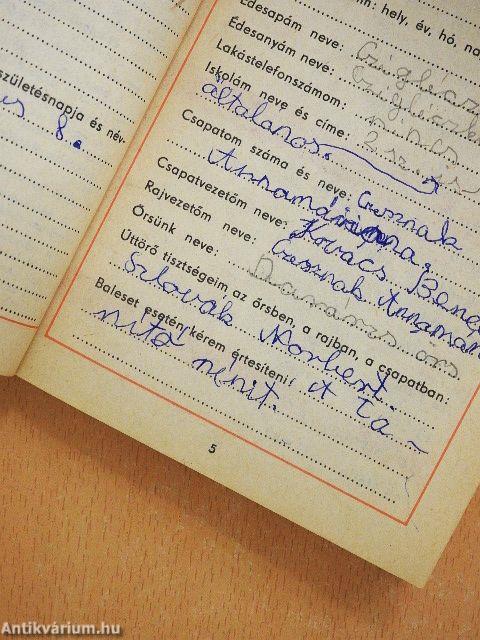 születésnapja és név-
us 8.
hely, év, hó, na
Édesapám neve:
Édesanyám neve:
Lakástelefonszámom: nincs
Iskolám neve és címe: 2 sz.
általános.
Csapatom száma és neve: Csesznak
Annamária.
Csapatvezetőm neve: Kovács Bene
Rajvezetőm neve: Csesznak Annamár
Őrsünk neve: Narancs őrs
Úttörő tisztségeim az őrsben, a rajban, a csapatban:
Szlovák Norbert.
Baleset esetén kérem értesíteni: A ta-
nító nénit.
5
Antikvárium.hu